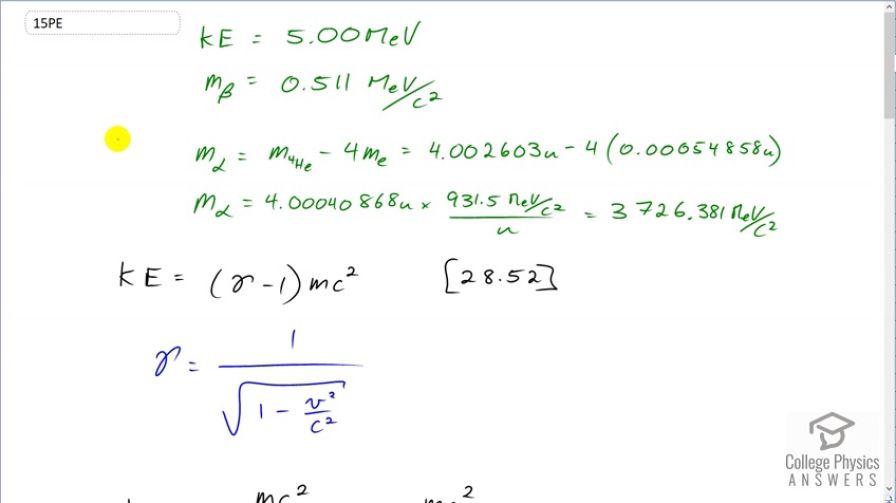 15PE
KE = 5.00 MeV
m_β = 0.511 MeV/c²
m_α = m_⁴He − 4m_e = 4.002603u − 4(0.00054858u)
m_α = 4.00040868u × 931.5 MeV/c² / u = 3726.381 MeV/c²
KE = (γ − 1)mc² [28.52]
γ = 1 / √(1 − v²/c²)
mc² mc²
College Physics
ANSWERS